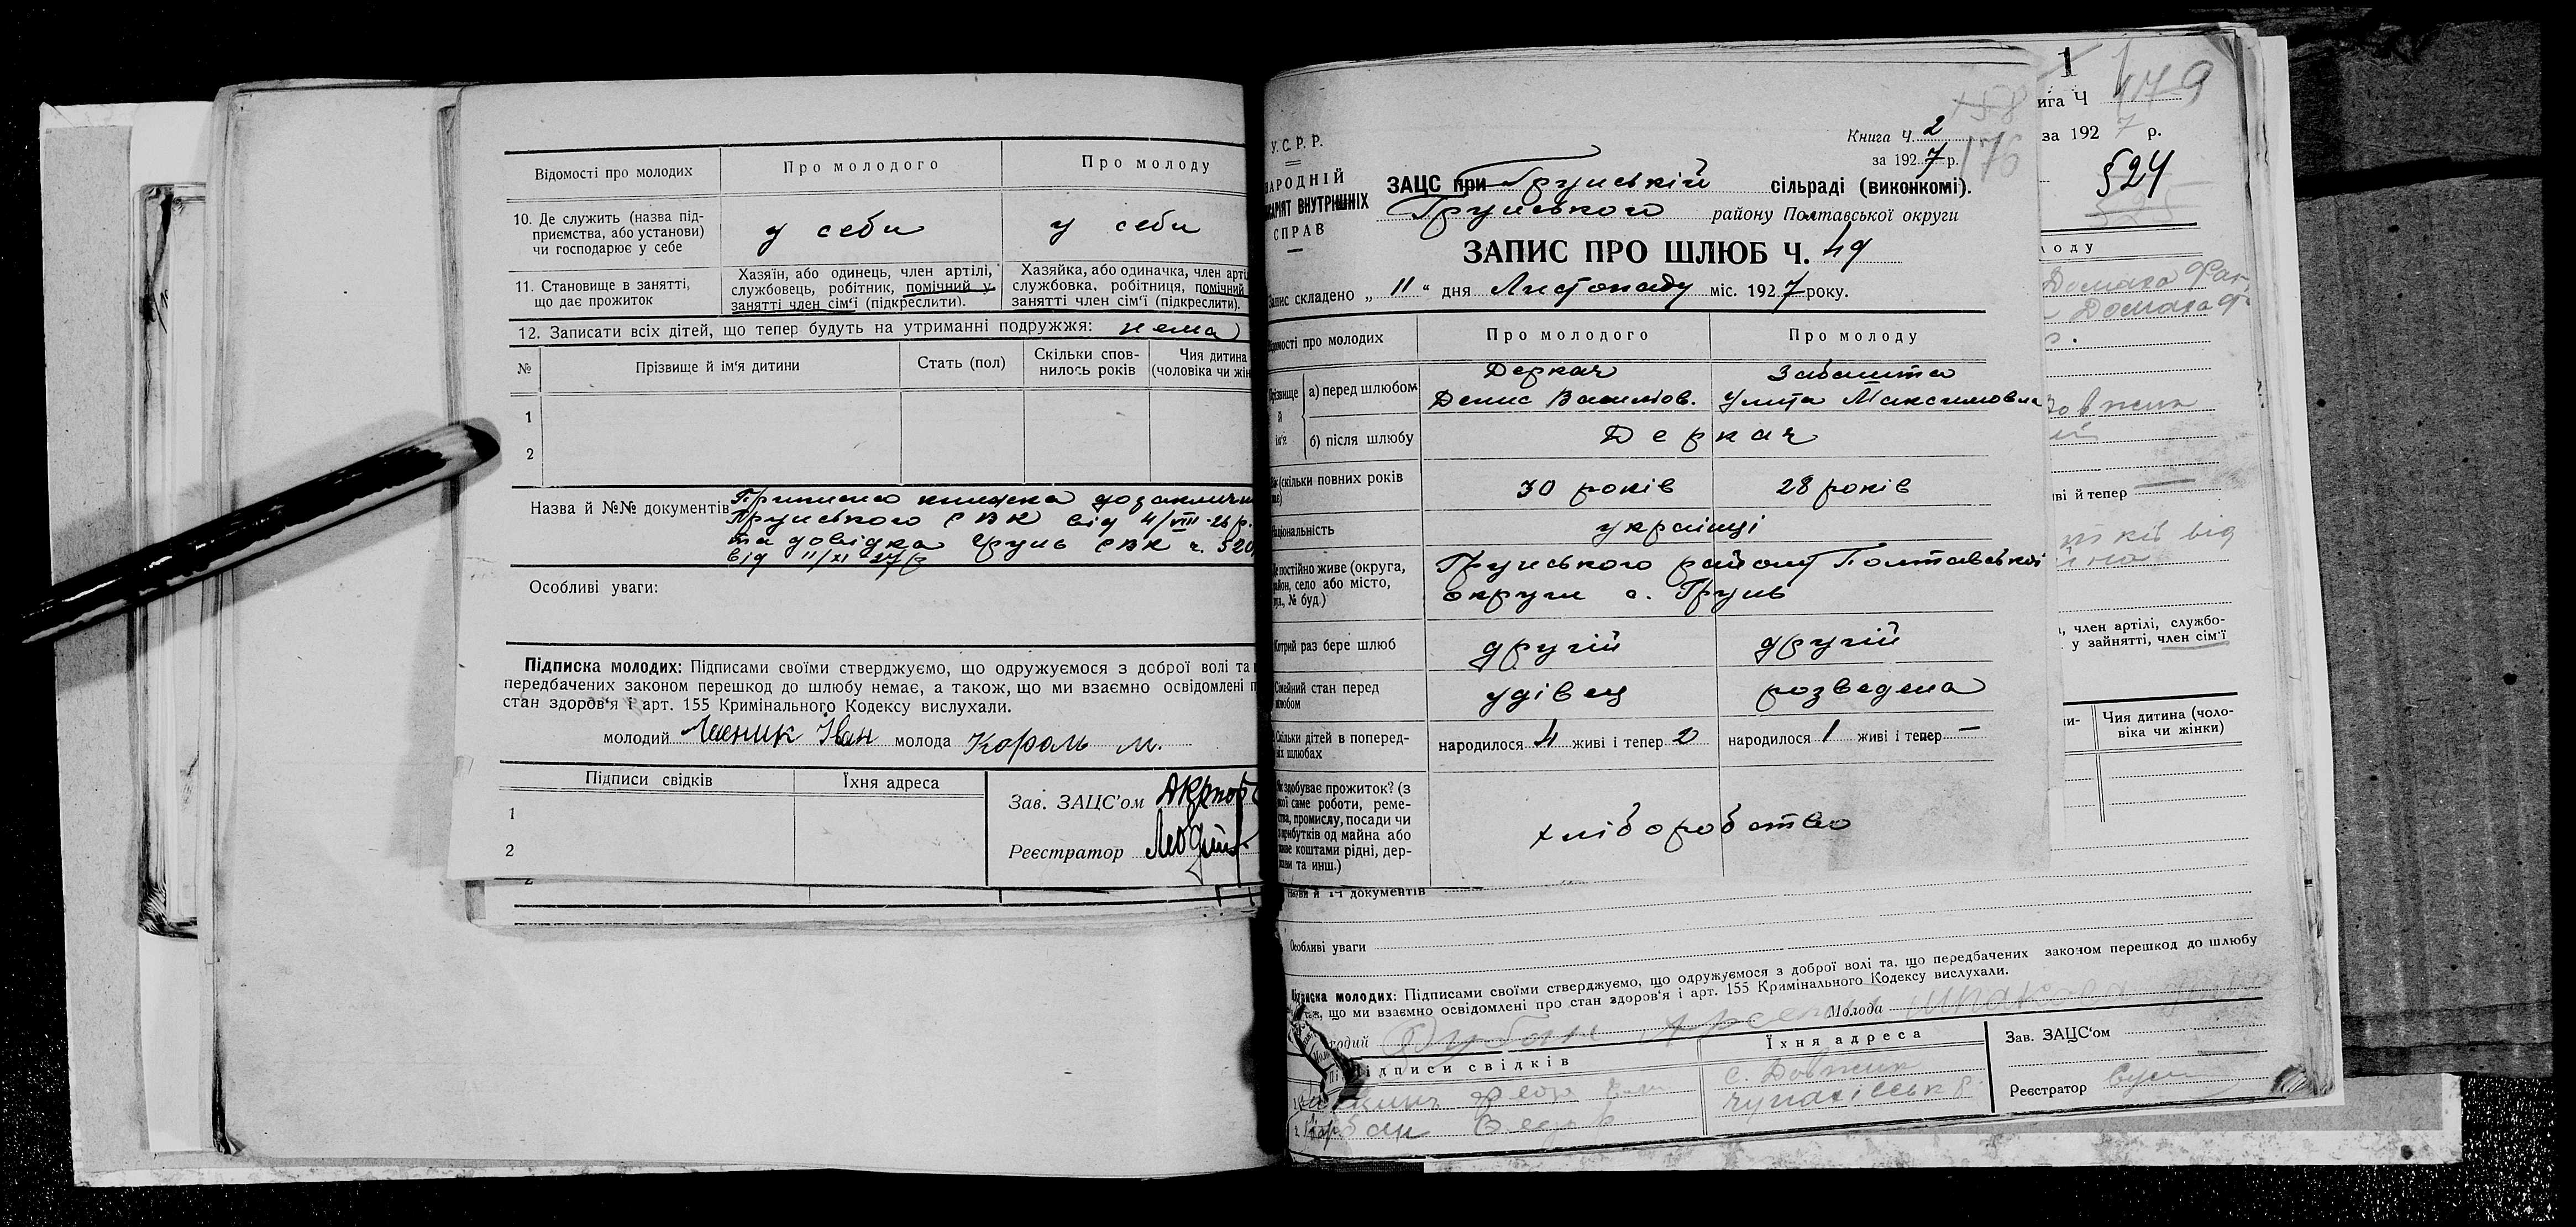 Відомості про молодих
Про молодого
Про молоду
10. Де служить (назва під-
приємства, або установи)
чи господарює у себе
у себи
у себи
11. Становище в занятті,
що дає прожиток
Хазяїн, або одинець, член артілі,
службовець, робітник, помічний у
занятті член сім'ї (підкреслити).
Хазяйка, або одиначка, член арті
службовка, робітниця, помічний
занятті член сім'ї (підкреслити).
12. Записати всіх дітей, що тепер будуть на утриманні подружжя: нема
№
Прізвище й ім'я дитини
Стать (пол)
Скільки спов-
нилось років
Чия дитина
(чоловіка чи жін
1
2
Назва й №№ документів
книжка
Грунського СВК від 4/VIII-26 р.
та довідка Грунь СВК ч. 520
від 11/XI 27 р
Особливі уваги:
Підписка молодих: Підписами своїми стверджуємо, що одружуємося з доброї волі та
передбачених законом перешкод до шлюбу немає, а також, що ми взаємно освідомлені п
стан здоров'я і арт. 155 Кримінального Кодексу вислухали.
молодий Іван молода Король М.
Підписи свідків
Їхня адреса
1
2
Зав. ЗАЦС'ом
Реєстратор
У.С.Р.Р.
АРОДНІЙ
АРІЯТ ВНУТРІШНІХ
СПРАВ
Книга Ч. 2
за 1927 р.
176
ЗАЦС при Грунській сільраді (виконкомі).
Грунського району Полтавської округи
ЗАПИС ПРО ШЛЮБ Ч. 49
Запис складено „11“ дня Листопаду міс. 1927 року.
Відомості про молодих
Про молодого
Про молоду
Прізвище
й
ім'я
а) перед шлюбом
Деркач
Денис Василов.
Забашта
Улита Максимовна
б) після шлюбу
Деркач
(скільки повних років
30 років
28 років
Національність
українці
Де постійно живе (округа,
район, село або місто,
вул., № буд.)
Грунського району Полтавської
округи с. Грунь
Котрий раз бере шлюб
другій
другій
Сімейний стан перед
шлюбом
удівец
розведена
Скільки дітей в поперед-
ніх шлюбах
народилося 4 живі і тепер 2
народилося 1 живі і тепер —
Як здобуває прожиток? (з
якої саме роботи, реме-
ства, промислу, посади чи
з прибутків од майна або
живе коштами рідні, дер-
жави та инш.)
хлібороботво
1
ига Ч 179
за 1927 р.
524
лоду
Домаха
Домаха
Довжик
ві й тепер
від
, член артілі, службо-
у зайнятті, член сім'ї
Чия дитина (чоло-
віка чи жінки)
документів
Особливі уваги
Підписка молодих: Підписами своїми стверджуємо, що одружуємося з доброї волі та, що передбачених законом перешкод до шлюбу
що ми взаємно освідомлені про стан здоров'я і арт. 155 Кримінального Кодексу вислухали.
Молода
Підписи свідків
Їхня адреса
с. Довжик
Зав. ЗАЦС'ом
Реєстратор